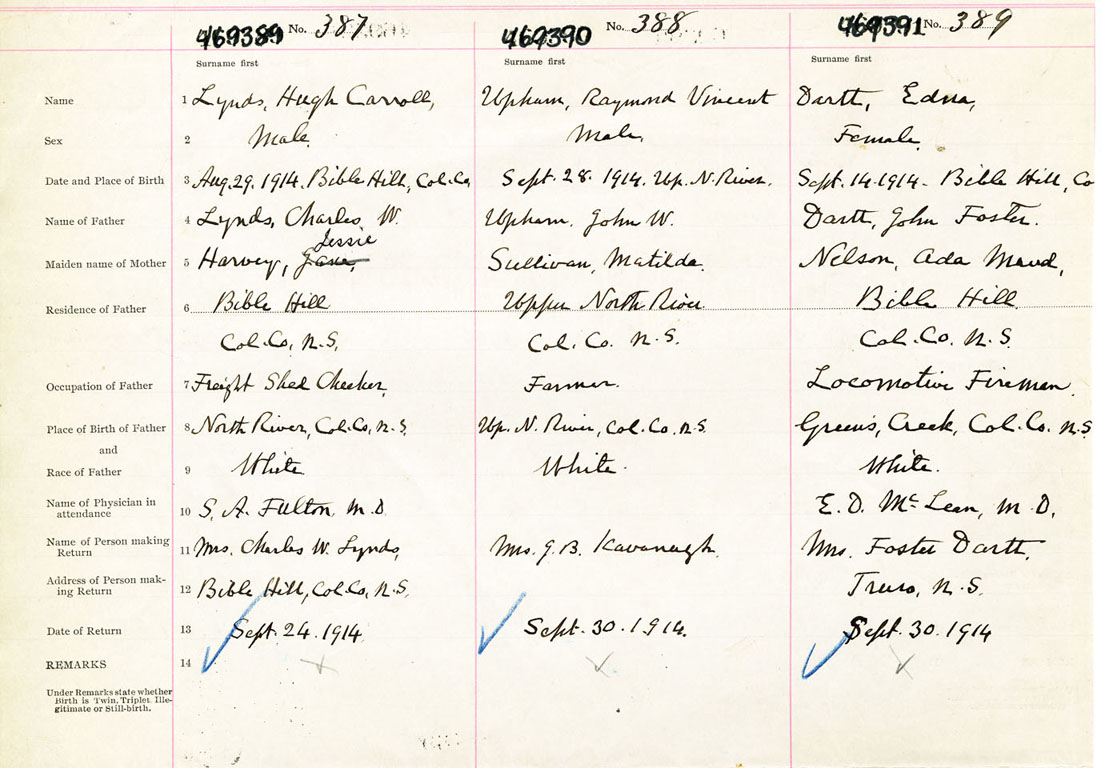 469389 No. 387 469390 No. 388 469391 No. 389
Surname first Surname first Surname first
Name 1 Lynds, Hugh Carroll, Upham, Raymond Vincent Dartt, Edna,
Sex 2 Male. Male. Female.
Date and Place of Birth 3 Aug. 29. 1914. Bible Hill, Col. Co. Sept. 28. 1914. Up. N. River. Sept. 14. 1914 - Bible Hill, Co
Name of Father 4 Lynds, Charles W. Upham, John W. Dartt, John Foster.
Jessie
Maiden name of Mother 5 Harvey, Jane, Sullivan, Matilda. Nelson, Ada Maud,
Residence of Father 6 Bible Hill Upper North River Bible Hill
Col. Co, N.S, Col. Co. N.S. Col. Co. N.S.
Occupation of Father 7 Freight Shed Checker, Farmer. Locomotive Fireman
Place of Birth of Father 8 North River, Col. Co, N.S. Up. N. River, Col. Co. N.S. Greens, Creek, Col. Co. N.S
and
Race of Father 9 White White. White.
Name of Physician in
attendance 10 S. A. Fulton, M.D. E. D. McLean, M.D.
Name of Person making
Return 11 Mrs. Charles W. Lynds, Mrs. G. B. Kavanagh. Mrs. Foster Dartt,
Address of Person mak-
ing Return 12 Bible Hill, Col. Co, N.S. Truro, N.S.
Date of Return 13 Sept. 24. 1914 Sept. 30. 1914. Sept. 30. 1914
REMARKS 14
Under Remarks state whether
Birth is Twin, Triplet, Ille-
gitimate or Still-birth.